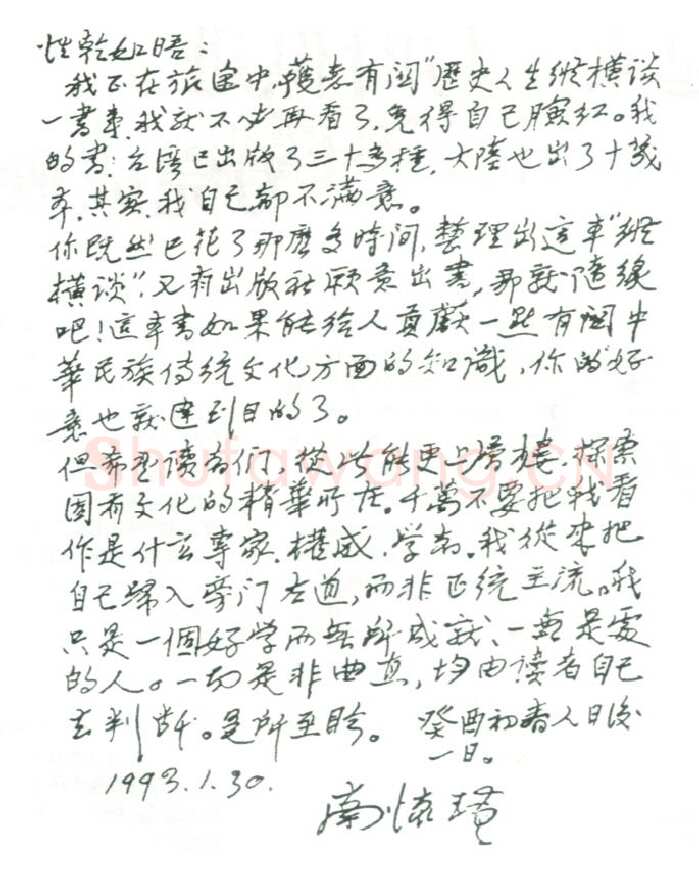 性乾如晤：
我正在旅途中，获悉有關"歷史人生縱橫談
一書事，我就不必再看了，免得自己臉红。我
的書：台湾已出版了三十多種，大陸也出了十幾
本，其实，我自己都不满意。
你既然已花了那麼多時间，整理出这本"纵
横谈"，又有出版社願意出書，那就随缘
吧！這本書如果能给人貢獻一点有関中
華民族传统文化方面的知識，你的好
意也就達到目的了。
但希望读者们，從此能更上層楼，探索
固有文化的精華所在。千萬不要把我看
作是什么專家、權威、学者。我從来把
自己歸入旁门左道，而非正统主流。我
只是一個好学而無所成就、一無是處
的人。一切是非曲直，均由读者自己
去判断。是所至盼。 癸酉初春人日後
一日。
1993.1.30.
南怀瑾
Shufawang.CN